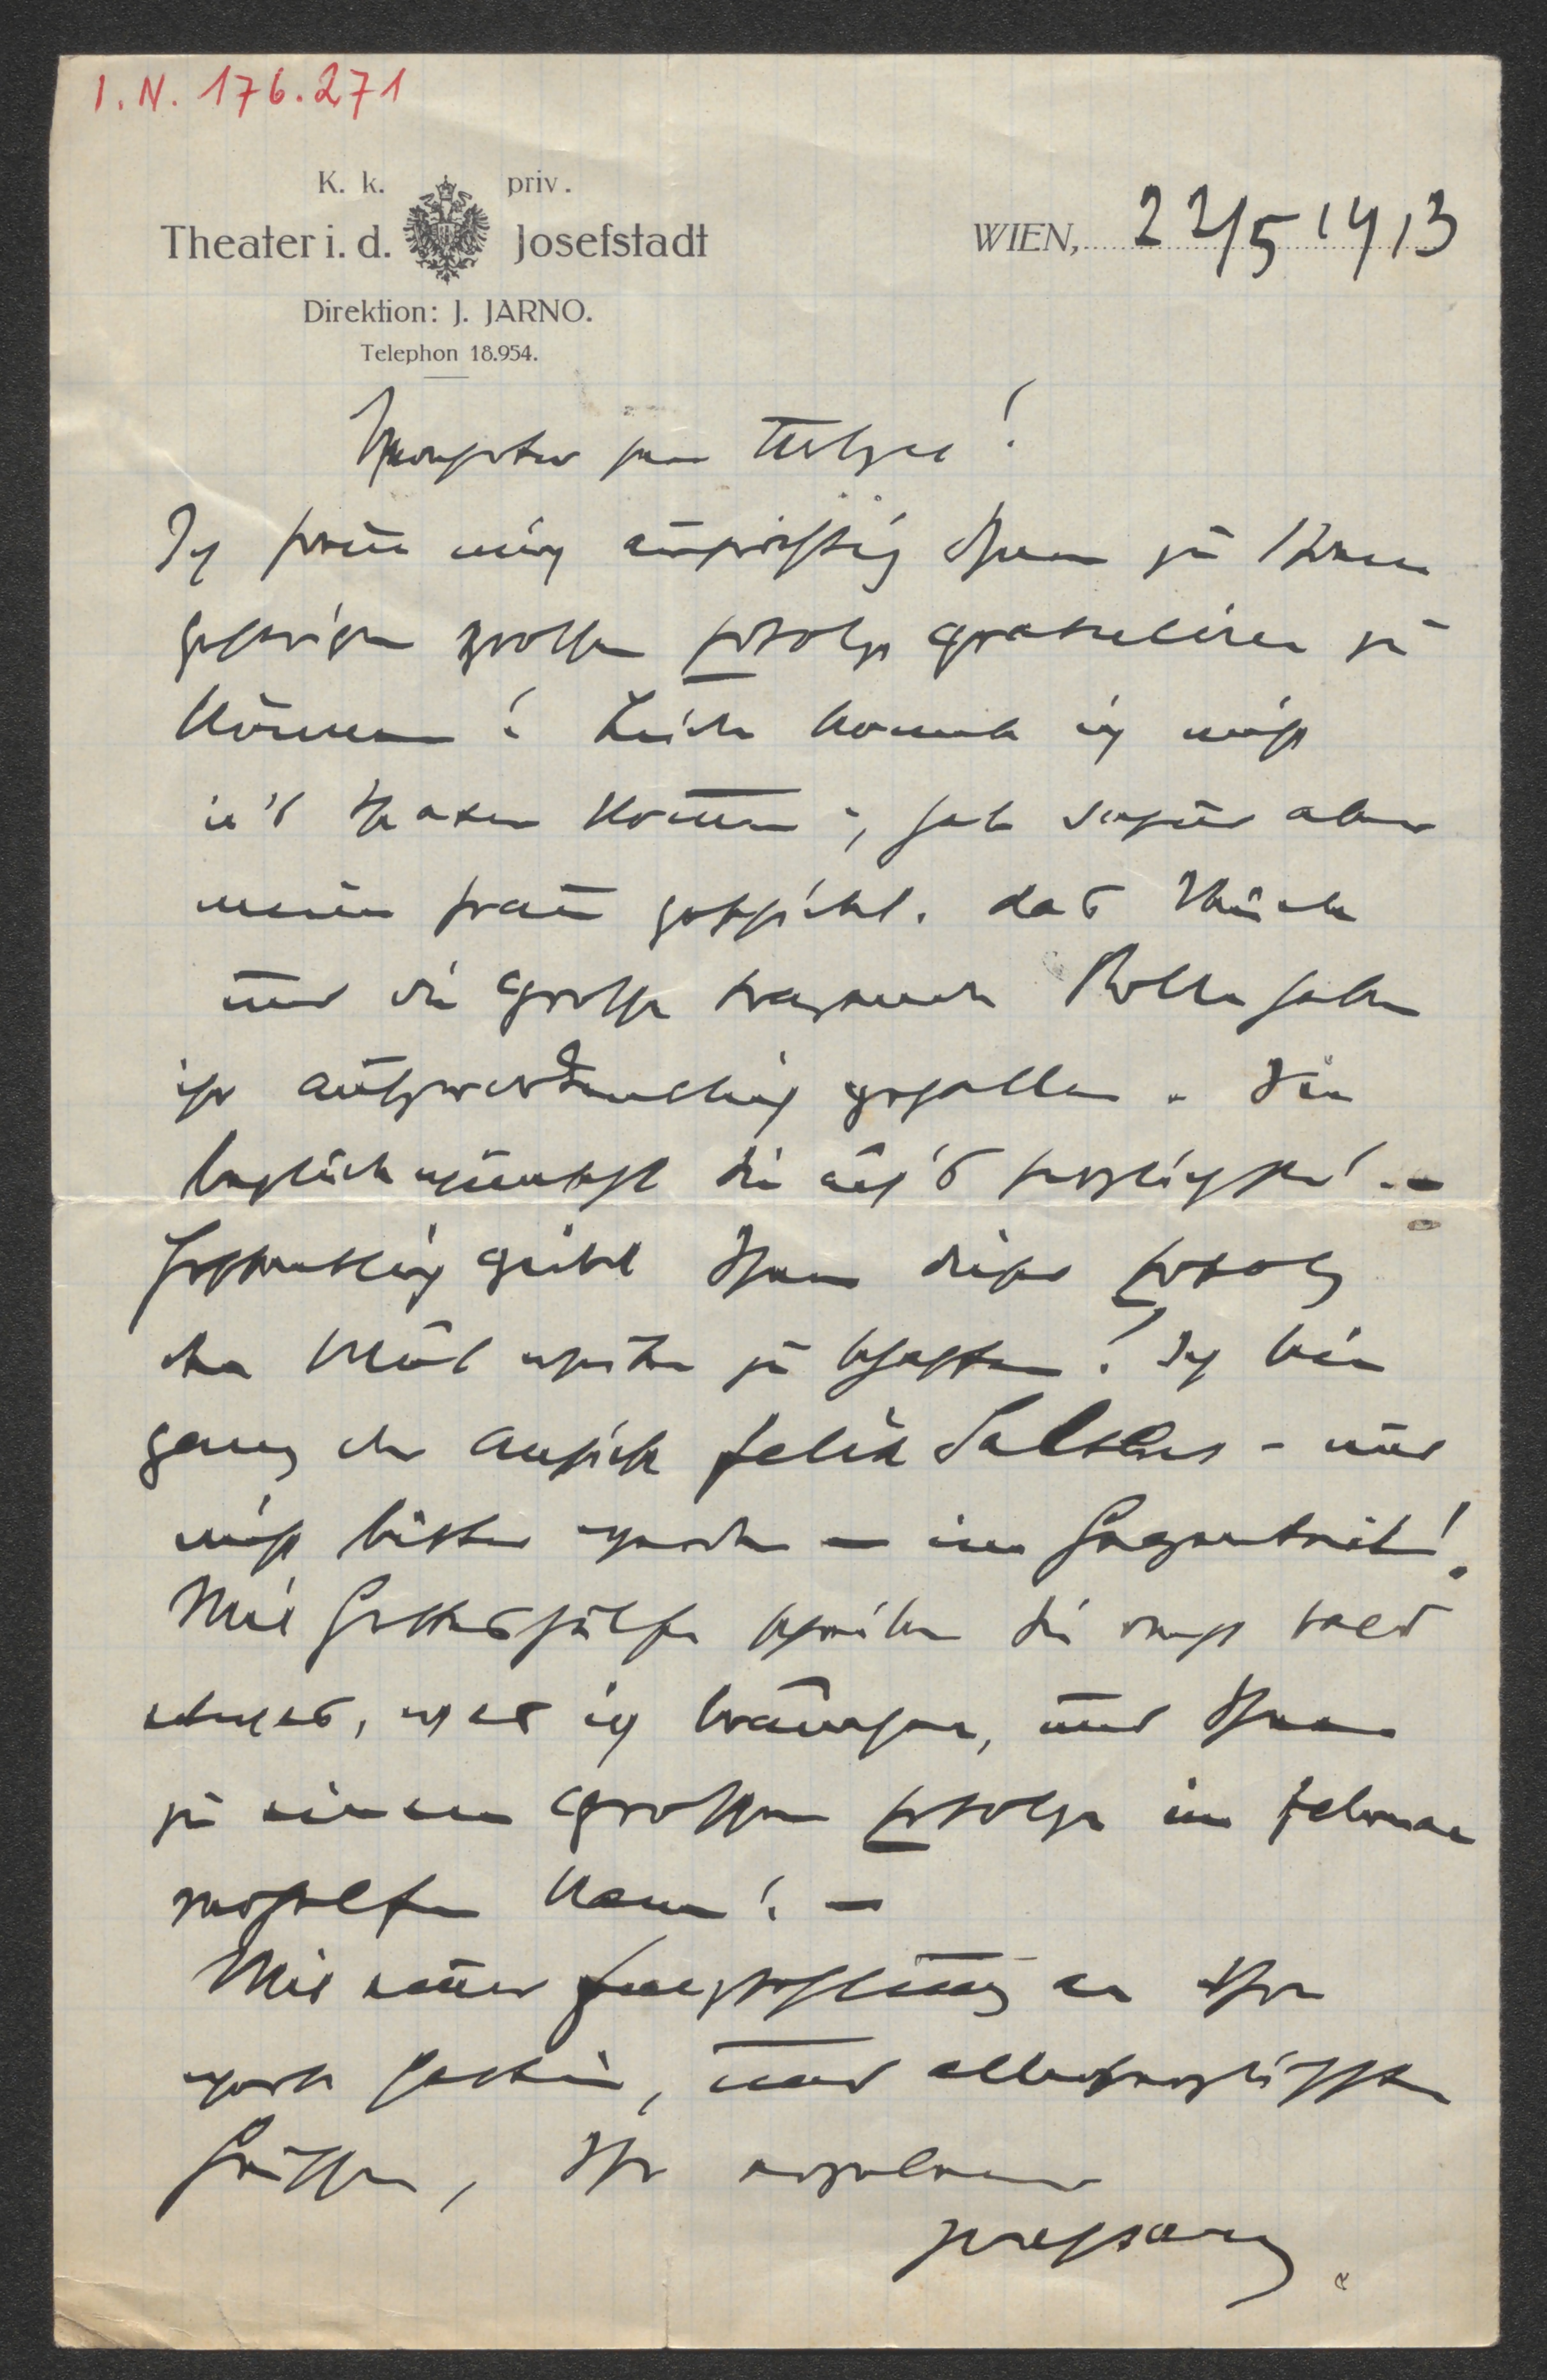 I.N. 176.271
K. k. priv.
Theater i. d. Josefstadt
WIEN, 22/5 1913
Direktion: J. JARNO.
Telephon 18.954.
Verehrter Herr
Ich freue mich aufrichtig Ihnen zu Ihrem
gestrigen großen Erfolge gratulieren zu
können! Leider konnte ich nicht
in's Theater kommen, hab dafür aber
meine Frau geschickt. das Stück
und die große tragende Rolle haben
ihr außerordentlich gefallen. Sie
beglückwünscht Sie auf's herzlichste! –
Hoffentlich giebt Ihnen dieser Erfolg
den Mut weiter zu schaffen! Ich bin
ganz der Ansicht Felix Saltens – nur
nicht bitter werden – im Gegenteil!
Mit Gotteshülfe schreiben Sie recht bald
etwas, was ich brauche, und Ihnen
zu einem großen Erfolge im Februar
verhelfen kann! –
Mit einer Empfehlung an Ihre
werte Gattin, und allerherzlichsten
Grüßen, Ihr ergebener